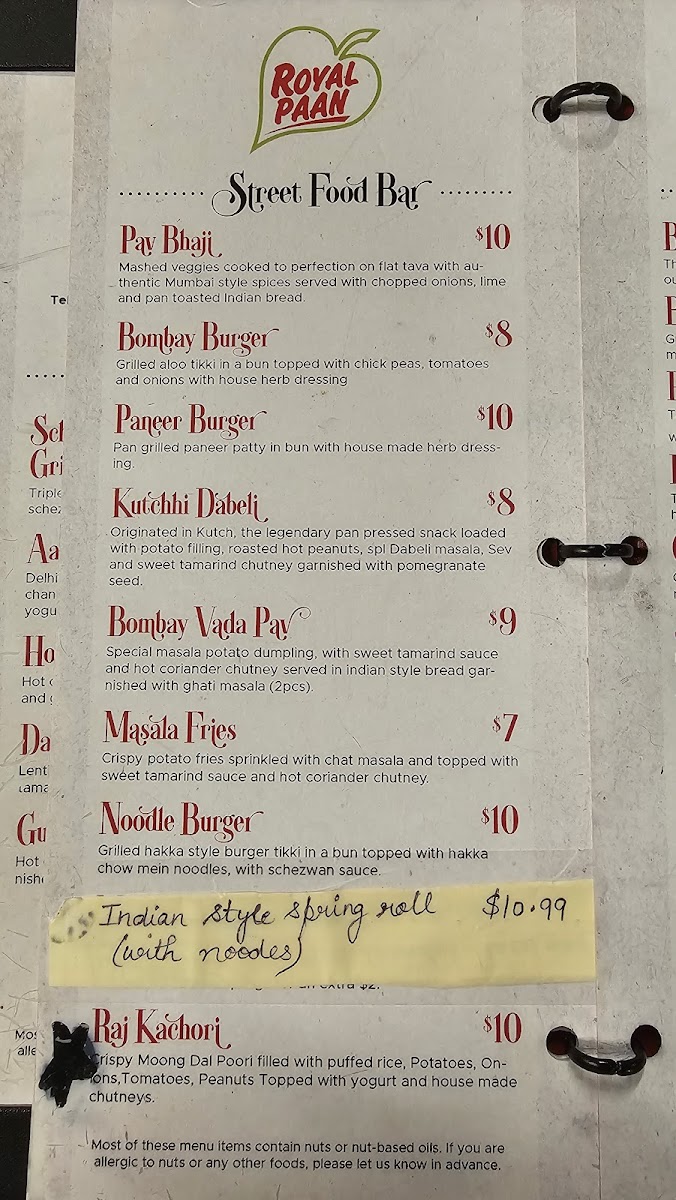 ROYAL
PAAN
Street Food Bar
Pav Bhaji $10
Mashed veggies cooked to perfection on flat tava with au-
thentic Mumbai style spices served with chopped onions, lime
and pan toasted Indian bread.
Bombay Burger $8
Grilled aloo tikki in a bun topped with chick peas, tomatoes
and onions with house herb dressing
Paneer Burger $10
Pan grilled paneer patty in bun with house made herb dress-
ing.
Kutchhi Dabeli $8
Originated in Kutch, the legendary pan pressed snack loaded
with potato filling, roasted hot peanuts, spl Dabeli masala, Sev
and sweet tamarind chutney garnished with pomegranate
seed.
Bombay Vada Pav $9
Special masala potato dumpling, with sweet tamarind sauce
and hot coriander chutney served in indian style bread gar-
nished with ghati masala (2pcs).
Masala Fries $7
Crispy potato fries sprinkled with chat masala and topped with
sweet tamarind sauce and hot coriander chutney.
Noodle Burger $10
Grilled hakka style burger tikki in a bun topped with hakka
chow mein noodles, with schezwan sauce.
Indian style spring roll $10.99
(with noodes)
extra $2.
Raj Kachori $10
Crispy Moong Dal Poori filled with puffed rice, Potatoes, On-
ions,Tomatoes, Peanuts Topped with yogurt and house made
chutneys.
Most of these menu items contain nuts or nut-based oils. If you are
allergic to nuts or any other foods, please let us know in advance.